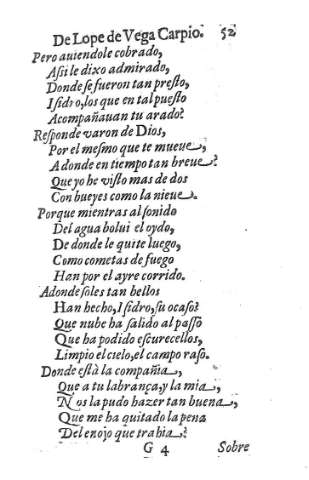 De Lope de Vega Carpio. 52
Pero auiendole cobrado,
Aſsi le dixo admirado,
Donde ſe fueron tan preſto,
Iſidro, los que en tal pueſto
Acompañauan tu arado?
Reſponde varon de Dios,
Por el meſmo que te mueue,
Adonde en tiempo tan breue?
Que yo he viſto mas de dos
Con bueyes como la nieue.
Porque mientras al ſonido
Del agua bolui el oydo,
De donde le quite luego,
Como cometas de fuego
Han por el ayre corrido.
Adonde ſoles tan bellos
Han hecho, Iſidro, ſu ocaſo?
Que nube ha ſalido al paſſo
Que ha podido eſcurecellos,
Limpio el cielo, el campo raſo.
Donde eſtà la compañia,
Que a tu labrança, y la mia,
Nos la pudo hazer tan buena,
Que me ha quitado la pena
Del enojo que trahia?
G 4 Sobre